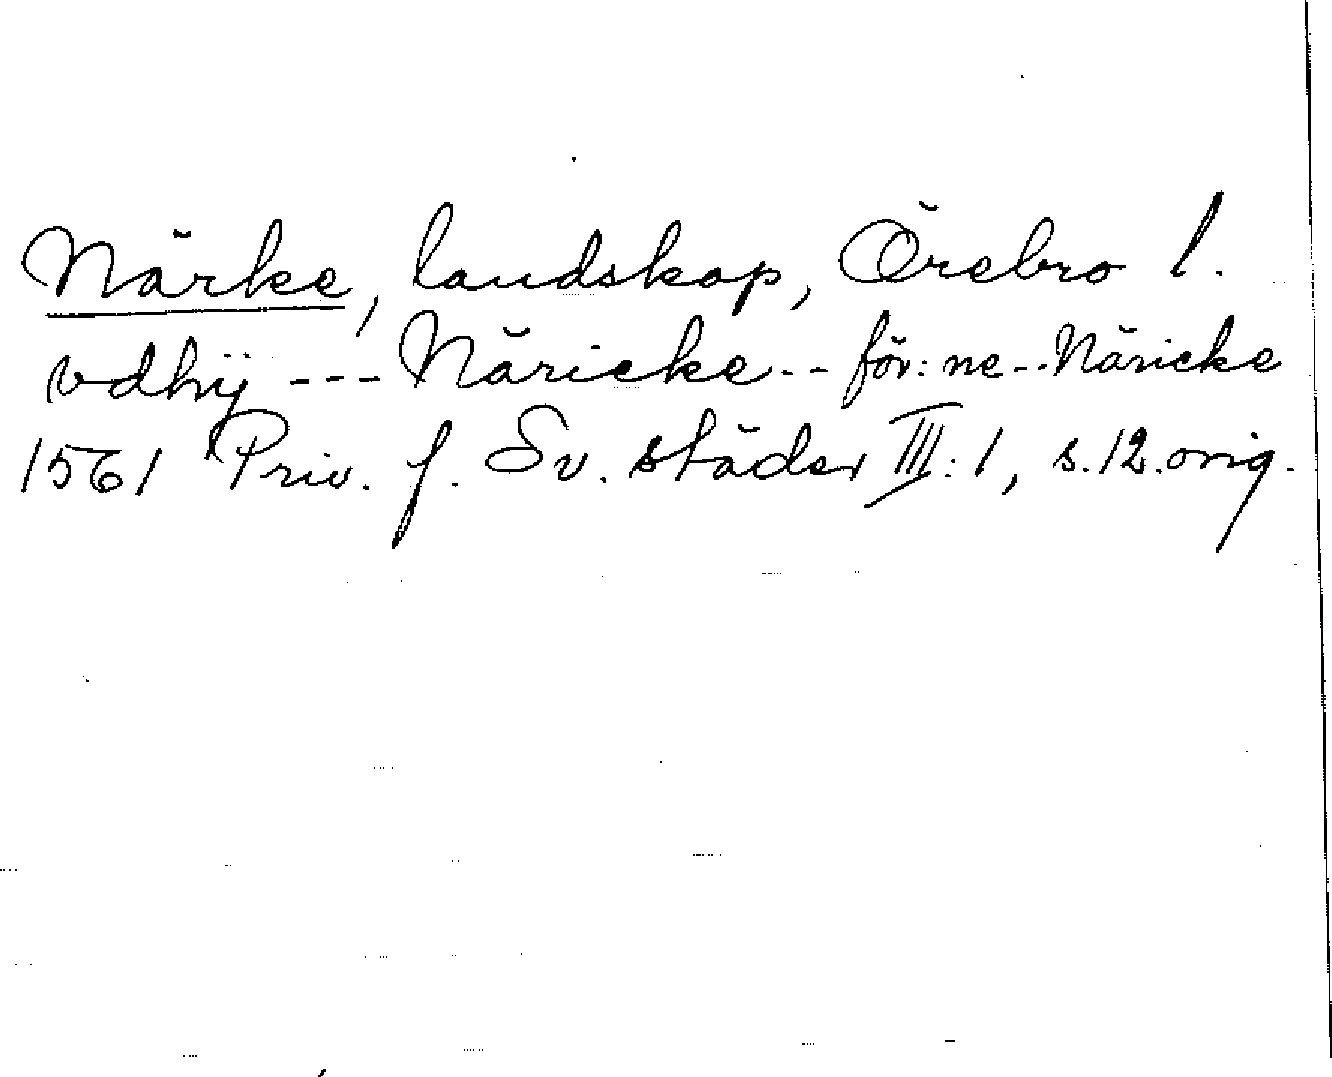 Närke, landskap, Örebro l.
vdhij --- Näricke -- för: ne -- Näricke
1561 Priv. f. Sv. städer III: 1, s. 12. orig.